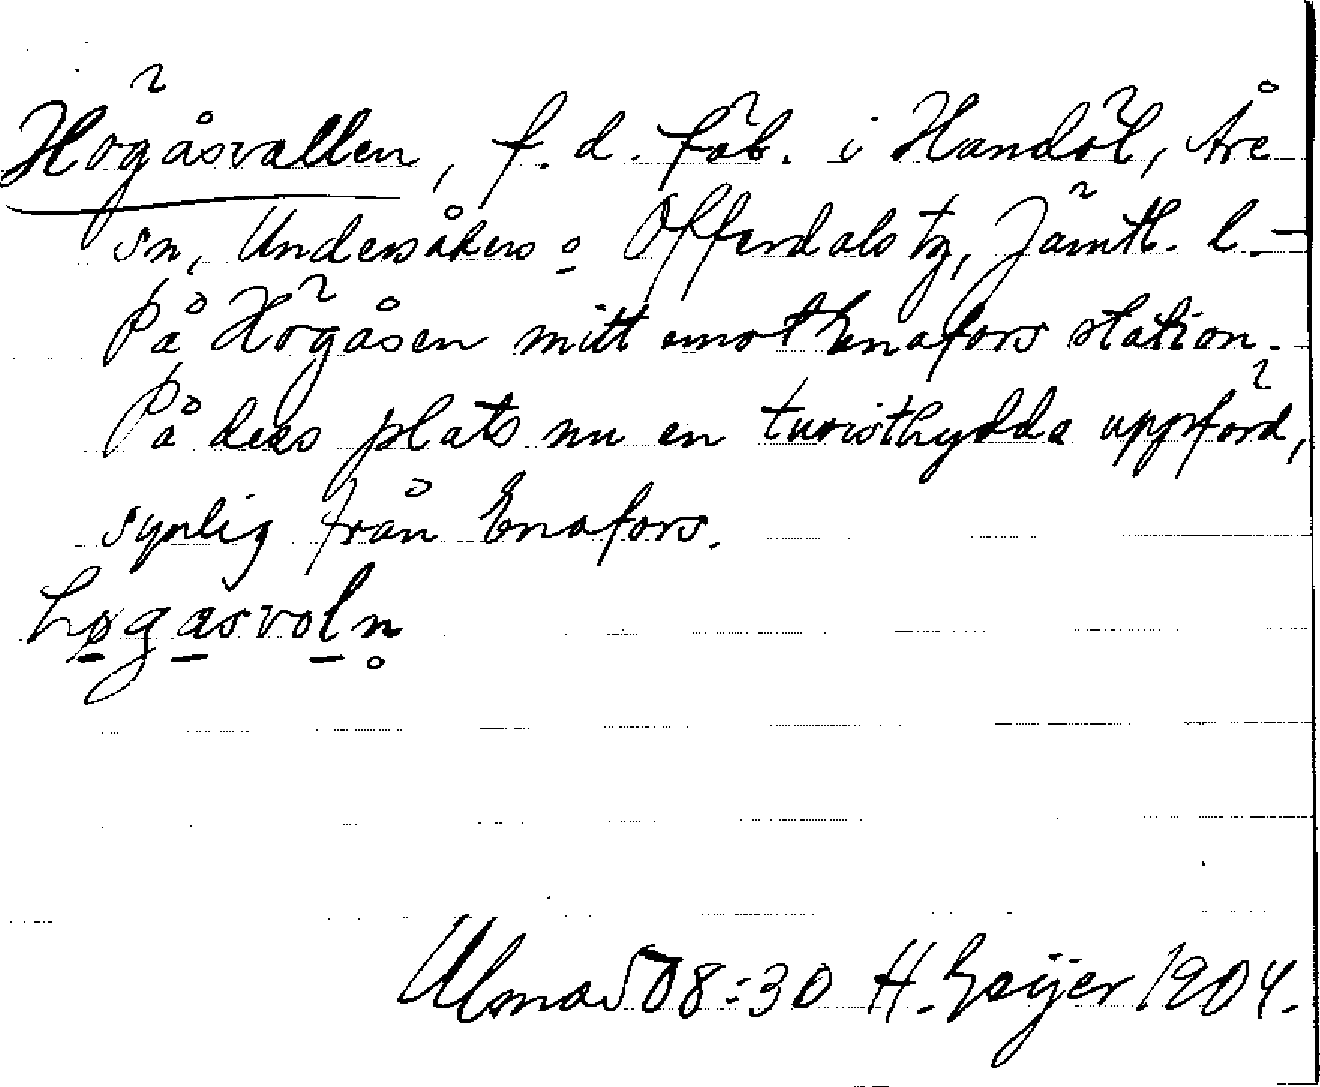 Högåsvallen, f. d. fäb. i Handöl, Åre
sn, Undersåkers o Offerdals tg, Jämtl. l. –
På Högåsen mitt emot Enafors station.
På dess plats nu en turisthydda uppförd,
synlig från Enafors.
høgasvoln
Ulma 508:30 H. Geijer 1904.